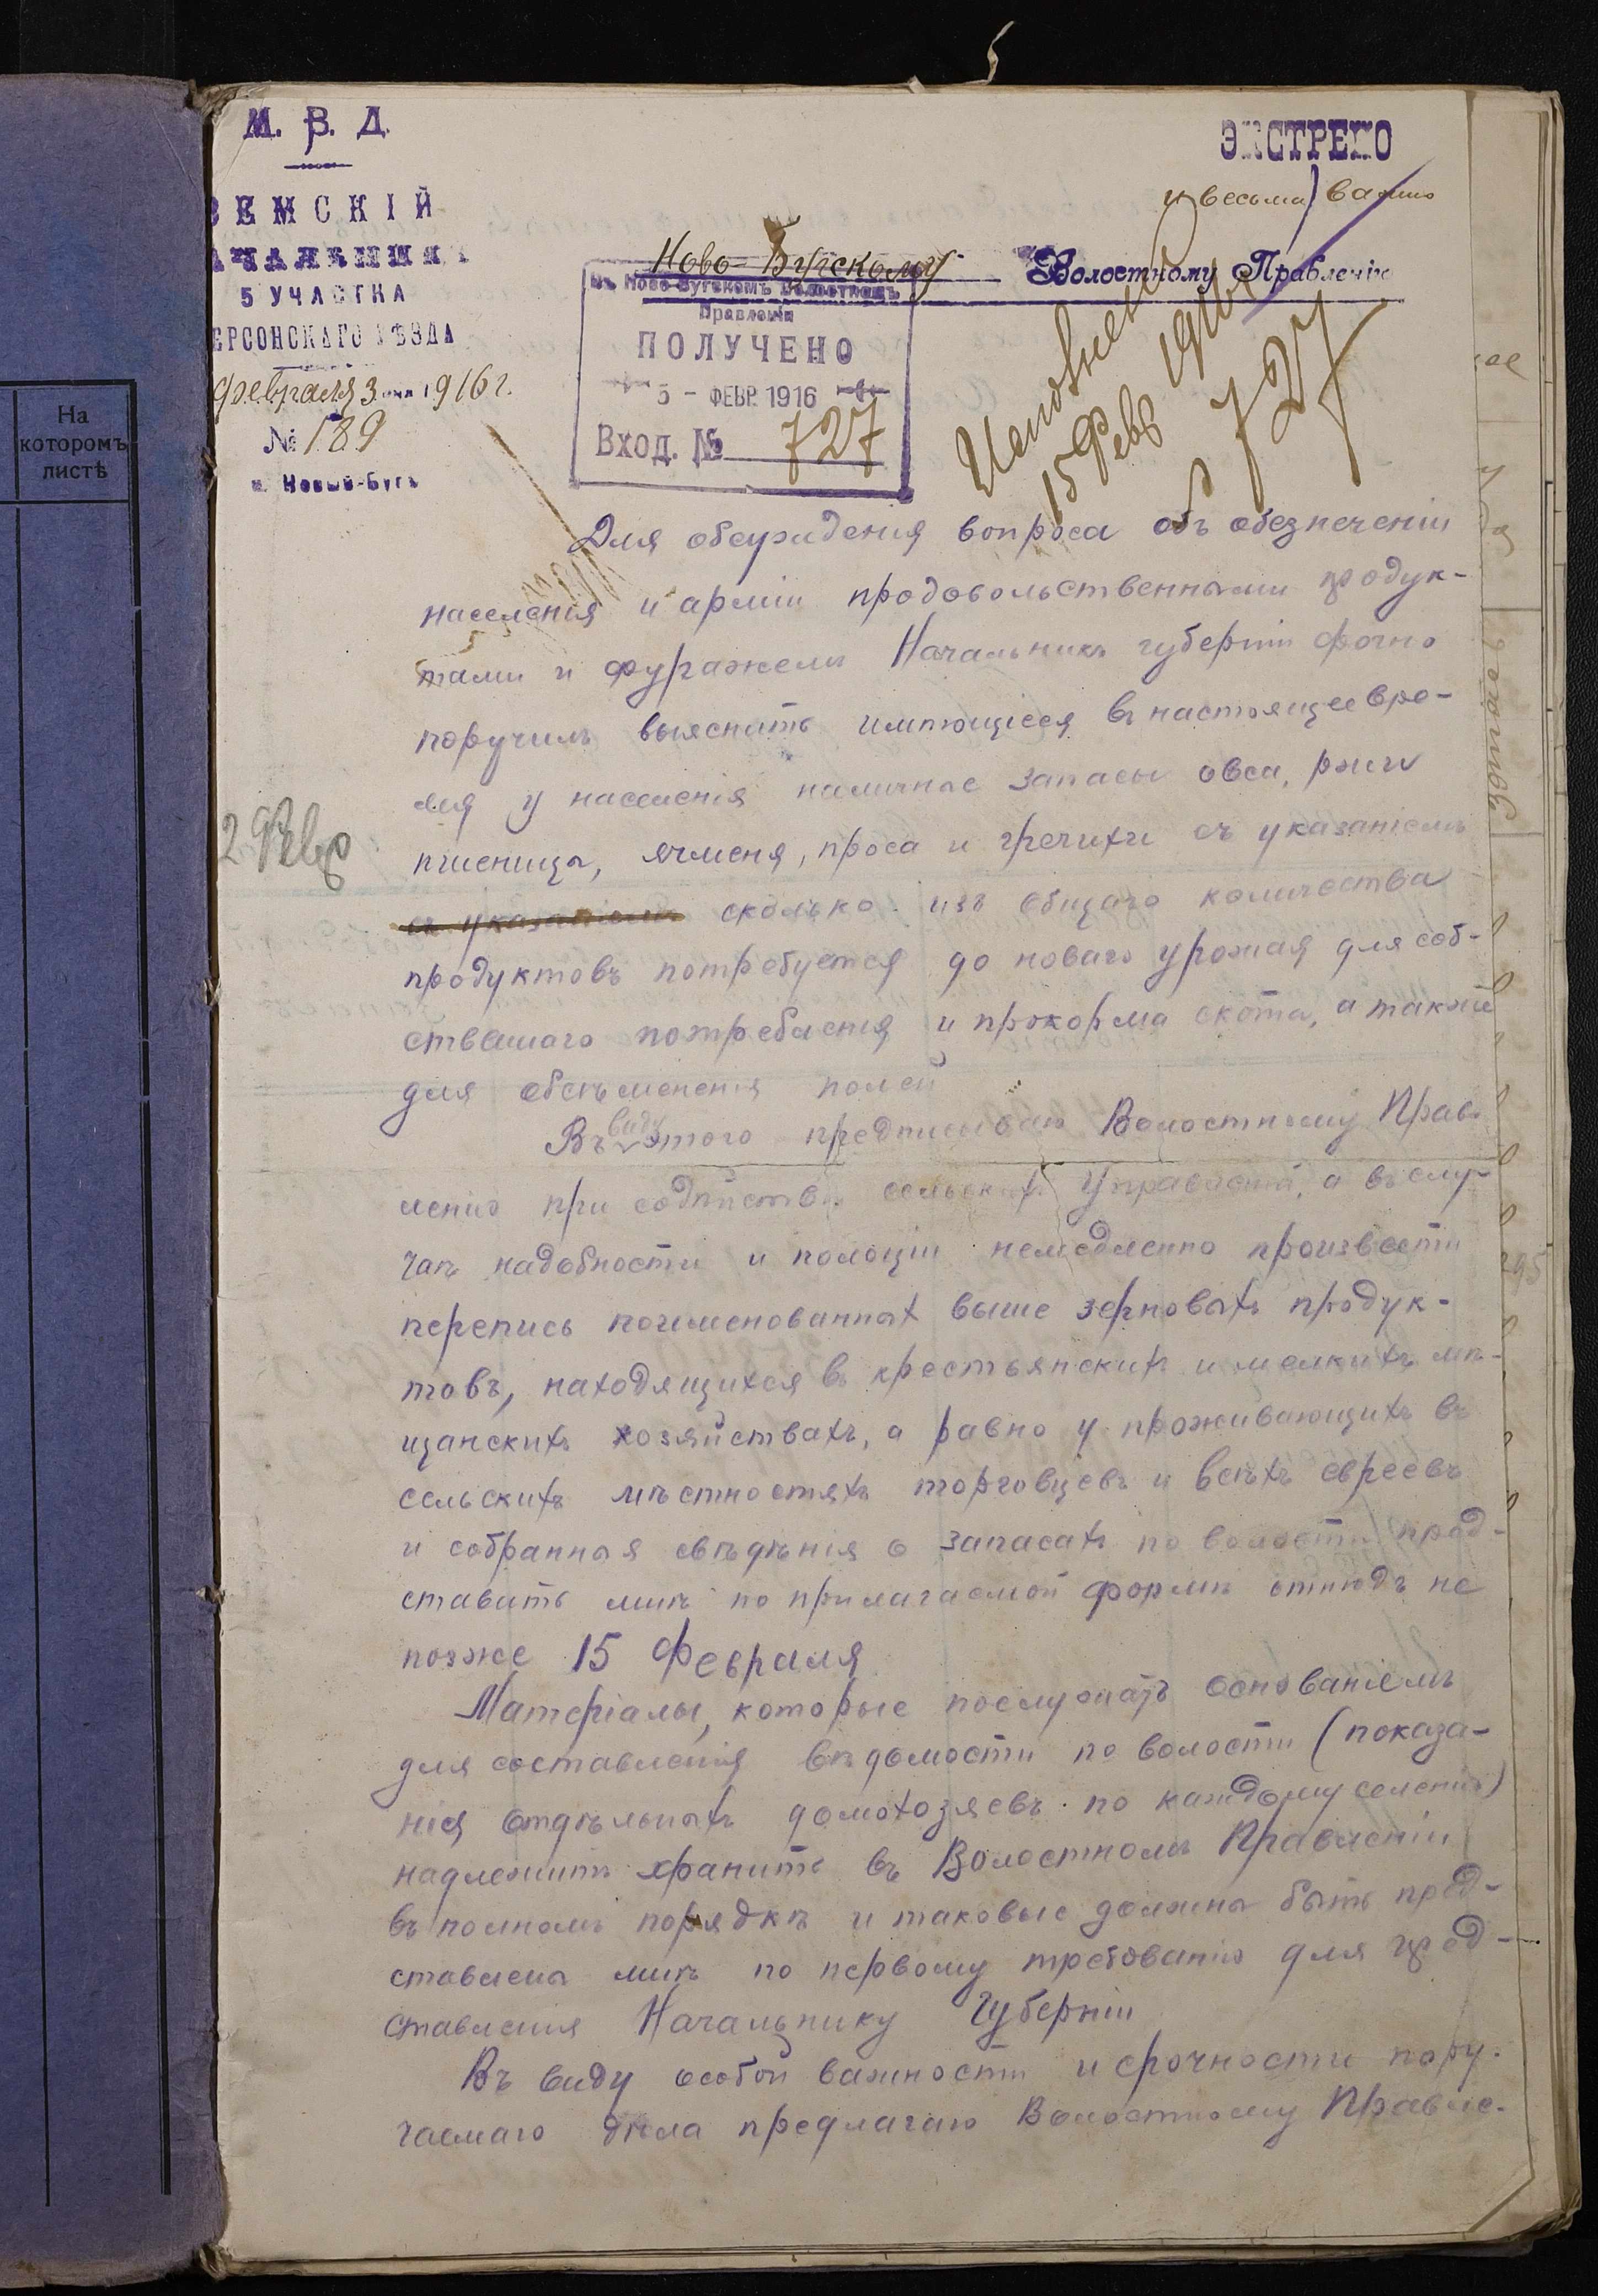 На
которомъ
листѣ
М. В. Д.
ЗЕМСКІЙ
НАЧАЛЬНИКЪ
5 УЧАСТКА
ХЕРСОНСКАГО УѢЗДА
Февраля 3 дня 1916 г.
№ 189
м. Новый-Бугъ
ЭКСТРЕНО
и весьма важно
Ново-Бугскому Волостному Правленію
Въ Ново-Бугскомъ Волостномъ
Правленіи
ПОЛУЧЕНО
5 - ФЕВР. 1916
Вход. № 727
Исполнено
15 Февр 1916
№ 727
Для обсужденія вопроса объ обезпеченіи
населенія и арміи продовольственными продук-
тами и фуражемъ Начальникъ губерніи срочно
поручилъ выяснить имѣющіеся въ настоящее вре-
мя у населенія наличные запасы овса, ржи
пшеницы, ячменя, проса и гречихи съ указаніемъ
съ указаніемъ сколько изъ общаго количества
продуктовъ потребуется до новаго урожая для соб-
ственнаго потребленія и прокорма скота, а также
для обсѣмененія полей
Въ виду этого предписываю Волостному Прав-
ленію при содѣйствіи сельскихъ Управленій, а въ слу-
чаѣ надобности и полиціи немедленно произвести
перепись поименованныхъ выше зерновыхъ продук-
товъ, находящихся въ крестьянскихъ и мелкихъ мѣ-
щанскихъ хозяйствахъ, а равно у проживающихъ въ
сельскихъ мѣстностяхъ торговцевъ и всѣхъ евреевъ
и собранныя свѣдѣнія о запасахъ по волости пред-
ставить мнѣ по прилагаемой формѣ отнюдь не
позже 15 Февраля
Матеріалы, которые послужатъ основаніемъ
для составленія вѣдомости по волости (показа-
нія отдѣльныхъ домохозяевъ по каждому селенію)
надлежитъ хранить въ Волостномъ Правленіи
въ полномъ порядкѣ и таковые должны быть пред-
ставлены мнѣ по первому требованію для пред-
ставленія Начальнику Губерніи
Въ виду особой важности и срочности пору-
чаемаго дѣла предлагаю Волостному Правле-